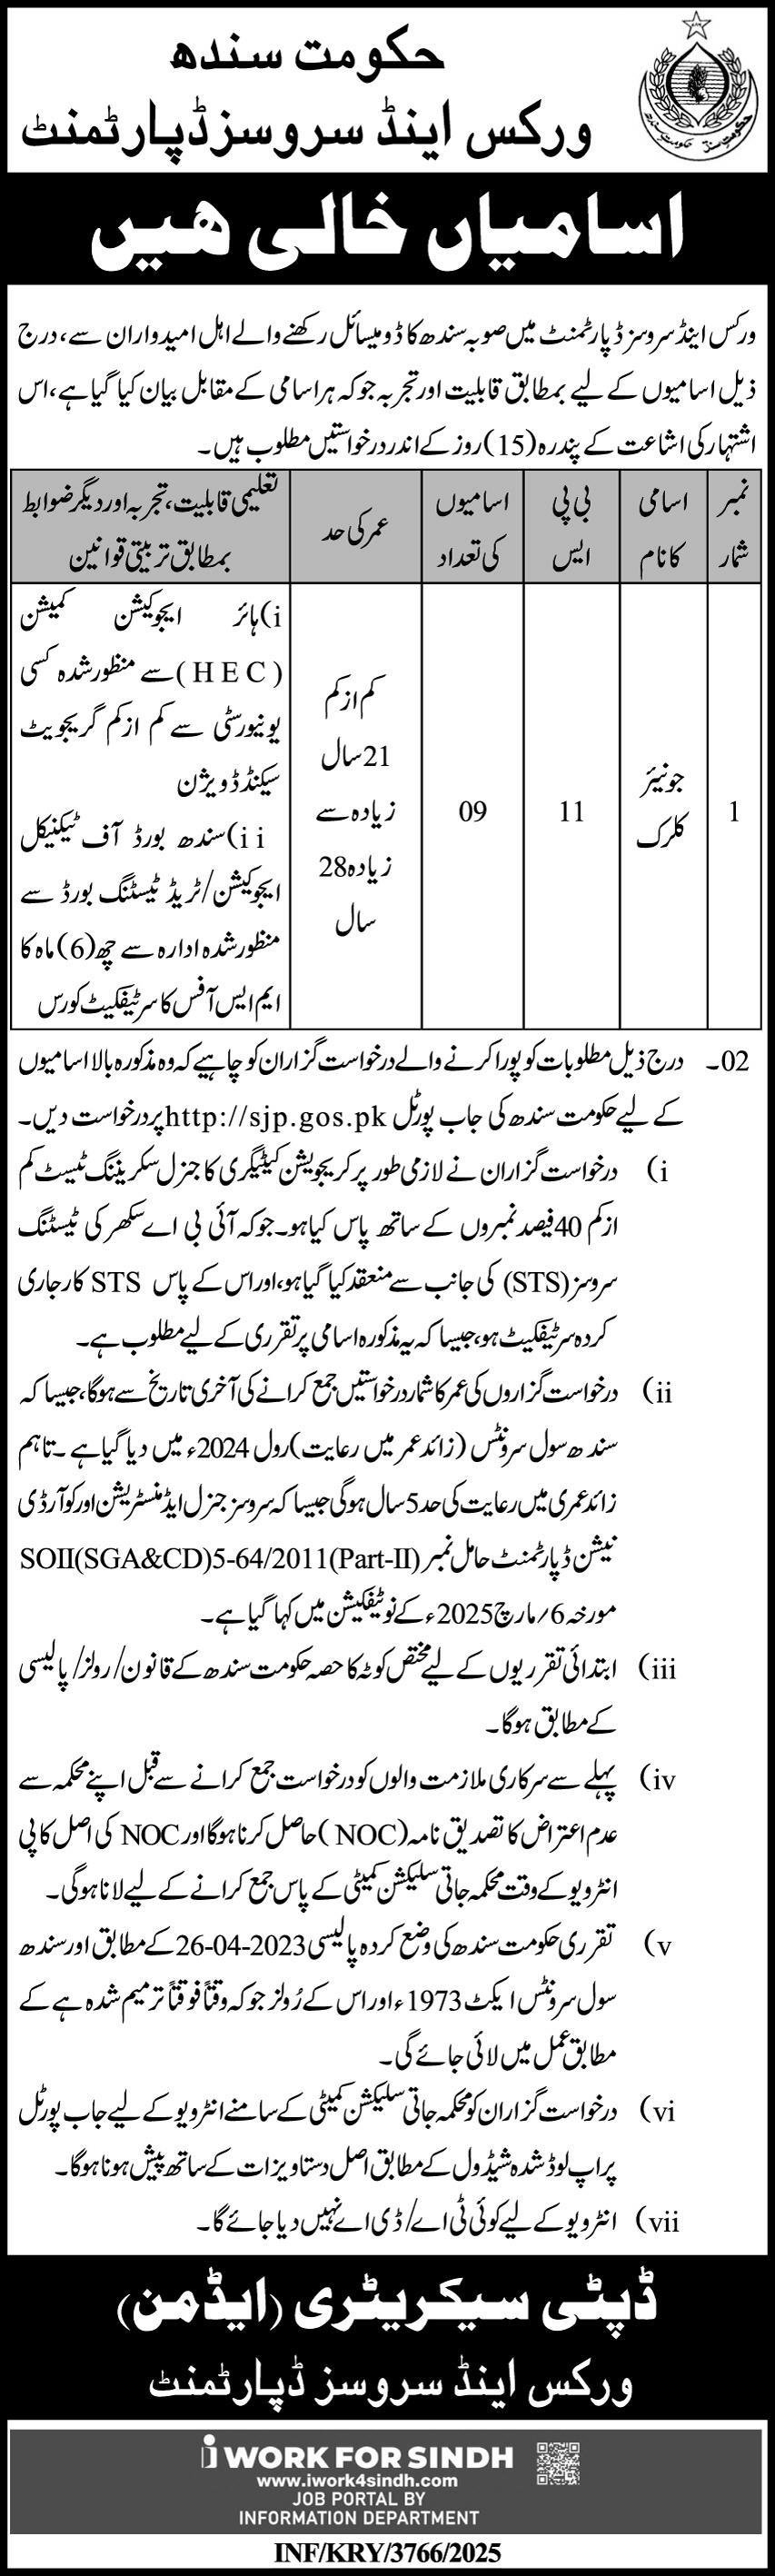 حکومت سندھ
ورکس اینڈ سروسز ڈپارٹمنٹ
حکومتِ سندھ حکومتِ سندھ
اسامیاں خالی ھیں
ورکس اینڈ سروسز ڈپارٹمنٹ میں صوبہ سندھ کا ڈومیسائل رکھنے والے اہل امیدواران سے، درج
ذیل اسامیوں کے لیے بمطابق قابلیت اور تجربہ جو کہ ہر اسامی کے مقابل بیان کیا گیا ہے، اس
اشتہار کی اشاعت کے پندرہ (15) روز کے اندر درخواستیں مطلوب ہیں۔
نمبر شمار
اسامی کا نام
بی پی ایس
اسامیوں کی تعداد
عمر کی حد
تعلیمی قابلیت، تجربہ اور دیگر ضوابط
بمطابق تربیتی قوانین
1
جونیئر
کلرک
11
09
کم از کم
21 سال
زیادہ سے
زیادہ 28
سال
i) ہائر ایجوکیشن کمیشن
(HEC) سے منظور شدہ کسی
یونیورسٹی سے کم از کم گریجویٹ
سیکنڈ ڈویژن
ii) سندھ بورڈ آف ٹیکنیکل
ایجوکیشن/ٹریڈ ٹیسٹنگ بورڈ سے
منظور شدہ ادارہ سے چھ (6) ماہ کا
ایم ایس آفس کا سرٹیفکیٹ کورس
02۔ درج ذیل مطلوبات کو پورا کرنے والے درخواست گزاران کو چاہیے کہ وہ مذکورہ بالا اسامیوں
کے لیے حکومت سندھ کی جاب پورٹل http://sjp.gos.pk پر درخواست دیں۔
i) درخواست گزاران نے لازمی طور پر گریجویشن کیٹیگری کا جنرل سکریننگ ٹیسٹ کم
از کم 40 فیصد نمبروں کے ساتھ پاس کیا ہو۔ جو کہ آئی بی اے سکھر کی ٹیسٹنگ
سروسز (STS) کی جانب سے منعقد کیا گیا ہو، اور اس کے پاس STS کا رجاری
کردہ سرٹیفکیٹ ہو، جیسا کہ یہ مذکورہ اسامی پر تقرری کے لیے مطلوب ہے۔
ii) درخواست گزاروں کی عمر کا شمار درخواستیں جمع کرانے کی آخری تاریخ سے ہوگا، جیسا کہ
سندھ سول سرونٹس (زائد عمر میں رعایت) رول 2024ء میں دیا گیا ہے۔ تاہم
زائد عمری میں رعایت کی حد 5 سال ہوگی جیسا کہ سروسز جنرل ایڈمنسٹریشن اور کوآرڈی
نیشن ڈپارٹمنٹ حامل نمبر SOII(SGA&CD)5-64/2011(Part-II)
مورخہ 6/مارچ 2025ء کے نوٹیفکیشن میں کہا گیا ہے۔
iii) ابتدائی تقرریوں کے لیے مختص کوٹہ کا حصہ حکومت سندھ کے قانون/رولز/پالیسی
کے مطابق ہوگا۔
iv) پہلے سے سرکاری ملازمت والوں کو درخواست جمع کرانے سے قبل اپنے محکمہ سے
عدم اعتراض کا تصدیق نامہ (NOC) حاصل کرنا ہوگا اور NOC کی اصل کاپی
انٹرویو کے وقت محکمہ جاتی سلیکشن کمیٹی کے پاس جمع کرانے کے لیے لانا ہوگی۔
v) تقرری حکومت سندھ کی وضع کردہ پالیسی 2023-04-26 کے مطابق اور سندھ
سول سرونٹس ایکٹ 1973ء اور اس کے رُولز جو کہ وقتاً فوقتاً ترمیم شدہ ہے کے
مطابق عمل میں لائی جائے گی۔
vi) درخواست گزاران کو محکمہ جاتی سلیکشن کمیٹی کے سامنے انٹرویو کے لیے جاب پورٹل
پر اپ لوڈ شدہ شیڈول کے مطابق اصل دستاویزات کے ساتھ پیش ہونا ہوگا۔
vii) انٹرویو کے لیے کوئی ٹی اے/ڈی اے نہیں دیا جائے گا۔
ڈپٹی سیکریٹری (ایڈمن)
ورکس اینڈ سروسز ڈپارٹمنٹ
i WORK FOR SINDH
www.iwork4sindh.com
JOB PORTAL BY
INFORMATION DEPARTMENT
INF/KRY/3766/2025